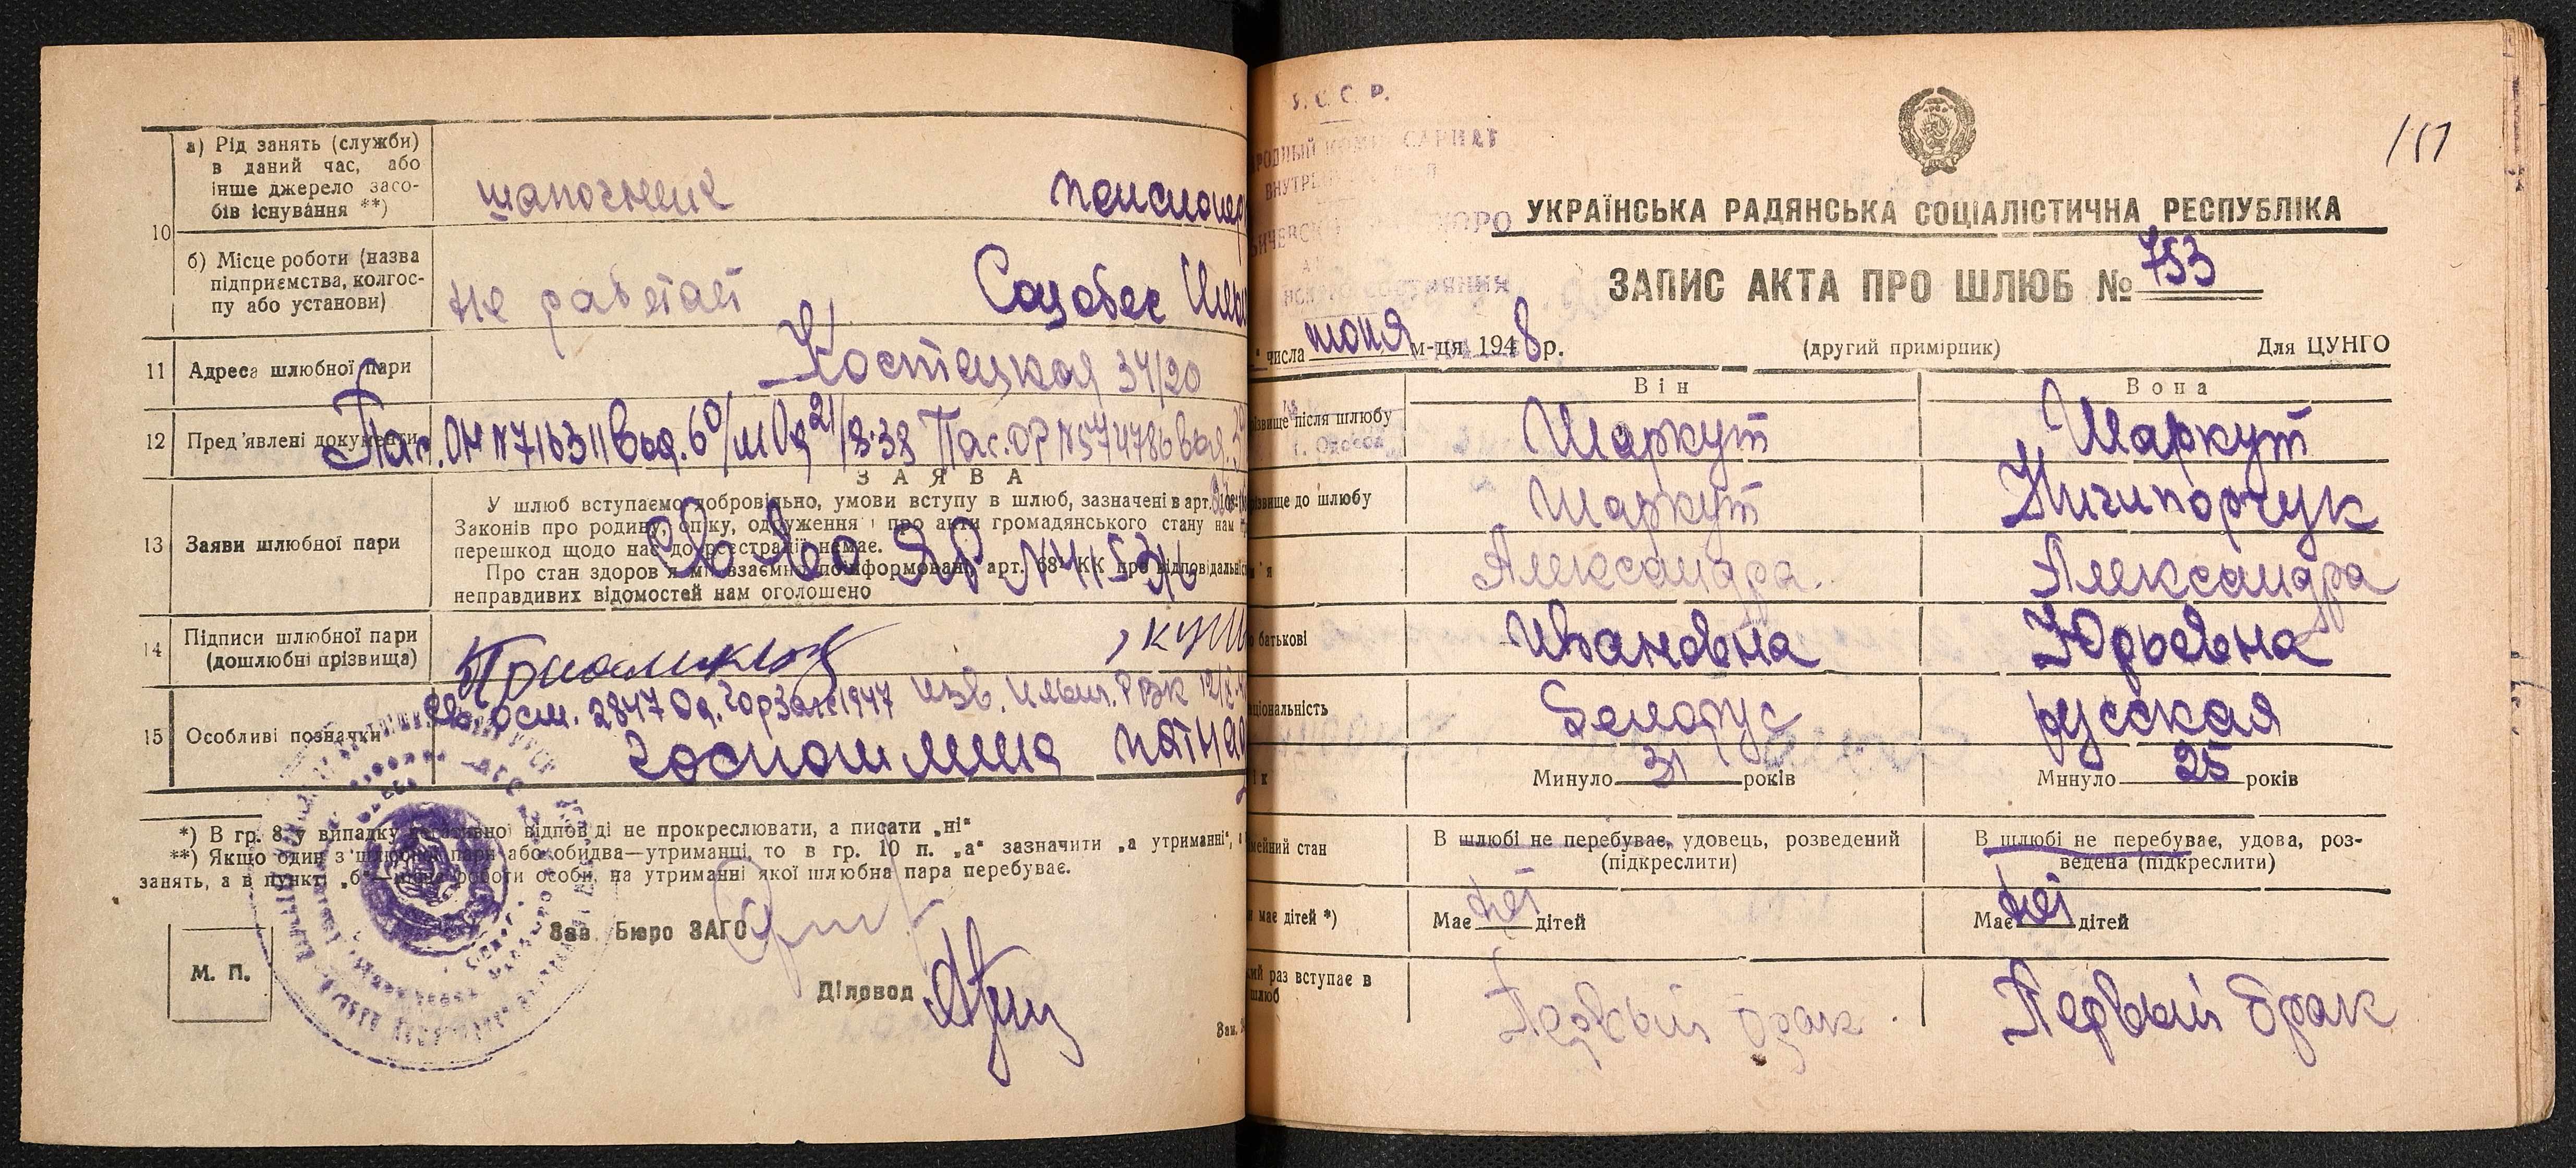 10
а) Рід занять (служби)
в даний час, або
інше джерело засо-
бів існування **)
шапочник
пенсионер
б) Місце роботи (назва
підприємства, колгос-
пу або установи)
не работает
Соцобес
11
Адреса шлюбної пари
Костецкая 34/20
12
Пред'явлені документи
Пас. ОН №716311 выд. 6 о/м Од 21/8-38 Пас. ОР №574786 выд.
ЗАЯВА
13
Заяви шлюбної пари
У шлюб вступаємо добровільно, умови вступу в шлюб, зазначені в арт.
Законів про родину, опіку, одруження і про акти громадянського стану нам
перешкод щодо нас до реєстрації немає.
Про стан здоров'я ми взаємно поінформовані, арт. 68 КК про відповідальні
неправдивих відомостей нам оголошено
Св во ЯР №415316
14
Підписи шлюбної пари
(дошлюбні прізвища)
15
Особливі позначки
2847 Од. 1947
госпошлина
*) В гр. 8 у випадку негативної відповіді не прокреслювати, а писати „ні“
**) Якщо один з шлюбної пари або обидва—утриманці, то в гр. 10 п. „а“ зазначити „а утриманні“,
занять, а в пункті „б“— роботи особи, на утриманні якої шлюбна пара перебуває.
М. П.
Зав. Бюро ЗАГС
Діловод
Зам.
У. С. С. Р.
РОДНЫЙ КОМИССАРИАТ
ВНУТРЕННИХ ДЕЛ
БЮРО
СОСТОЯНИЯ
г. Одесса
151
УКРАЇНСЬКА РАДЯНСЬКА СОЦІАЛІСТИЧНА РЕСПУБЛІКА
ЗАПИС АКТА ПРО ШЛЮБ № 753
числа июня м-ця 1948 р.
(другий примірник)
Для ЦУНГО
Він
Вона
ізвище після шлюбу
Шаркут
Шаркут
ізвище до шлюбу
Шаркут
Ничипорчук
м'я
Александра
Александра
о батькові
Ивановна
Юрьевна
ціональність
Белорус
русская
ік
Минуло 31 років
Минуло 25 років
мейний стан
В шлюбі не перебуває, удовець, розведений
(підкреслити)
В шлюбі не перебуває, удова, роз-
ведена (підкреслити)
и має дітей *)
Має нет дітей
Має нет дітей
кий раз вступає в
шлюб
Первый брак
Первый брак